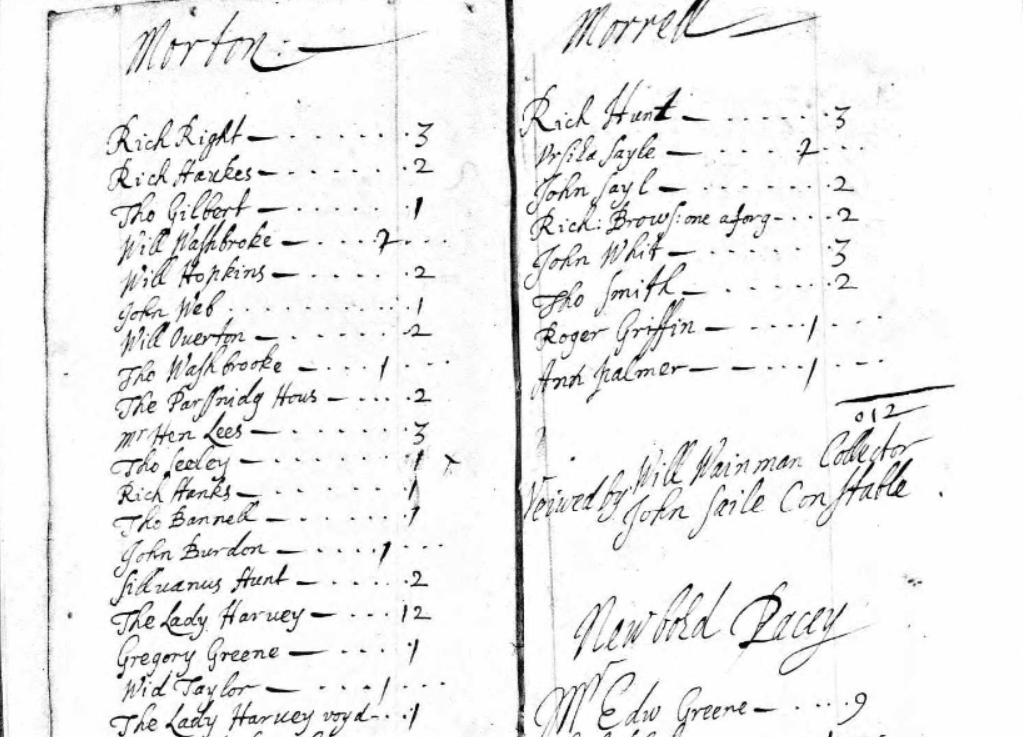 Morton:
Rich Right — . . . . . . . 3
Rich Haukes — . . . . . . . 2
Tho Gilbert — . . . . . . . 1
Will Washbroke — . . . . 2 . . .
Will Hopkins — . . . . . . 2
John Web . . . . . . . . . . 1
Will Ouerton — . . . . . . 2
Tho Washbrooke — . . . . 1 . . .
The Parsnidg Hous — . . . . 2
mr Hen Lees — . . . . . . . 3
Tho Seeley — . . . . . . . 1 x
Rich Hanks — . . . . . . . 1
Tho Bannell — . . . . . . 1
John Burdon — . . . . . 1 . . .
Silluanus Hunt — . . . . . 2
The Lady Haruey — . . . . 12
Gregory Greene — . . . . 1
Wid Taylor — . . . . 1 . . .
The Lady Haruey voyd . . 1
Morrell
Rich Hunt — . . . . . . . 3
Vrsila Sayle — . . . . . 2 . . .
John Sayl — . . . . . . . . 2
Rich: Brows: one aforg . . . . 2
John Whit — . . . . . . . 3
Tho Smith — . . . . . . . 2
Roger Griffin — . . . . 1 . . .
Ann Palmer — — . . . 1 . . .
012
Veiwed by Will Wainman Collector
John Saile Constable .
Newbold Pacey
Mr Edw Greene — . . . . 9